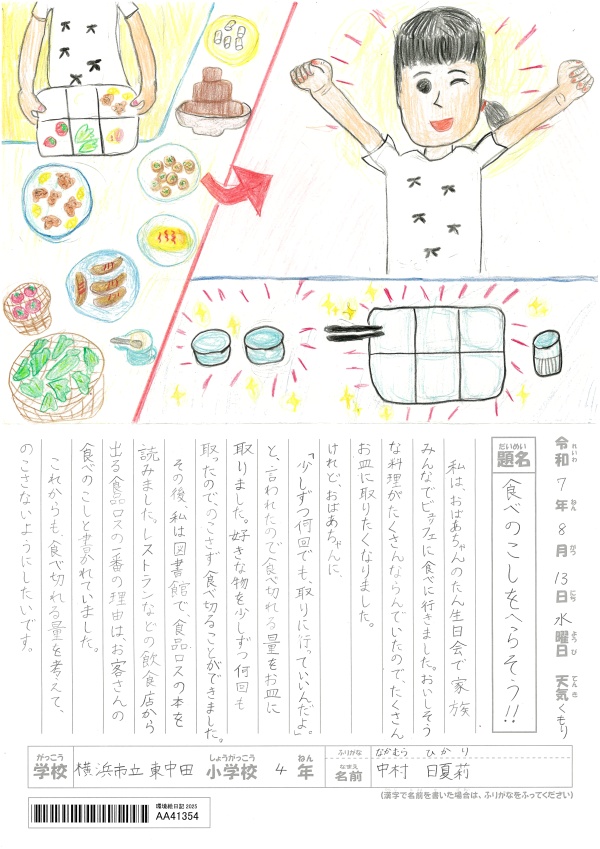 令和7年8月13日水曜日 天気くもり
れいわ ねん がつ にち ようび てんき
だいめい
題名 食べのこしをへらそう!!
私は、おばあちゃんのたん生日会で家族
みんなでビュッフェに食べに行きました。おいしそう
な料理がたくさんならんでいたので、たくさん
お皿に取りたくなりました。
けれど、おばあちゃんに、
「少しずつ何回でも、取りに行っていいんだよ。」
と、言われたので食べ切れる量をお皿に
取りました。好きな物を少しずつ何回も
取ったので、のこさず食べ切ることができました。
その後、私は図書館で、食品ロスの本を
読みました。レストランなどの飲食店から
出る食品ロスの一番の理由は、お客さんの
食べのこしと書かれていました。
これからも、食べ切れる量を考えて、
のこさないようにしたいです。
がっこう しょうがっこう ねん
学校 横浜市立 東中田 小学校 4年
ふりがな なかむら ひかり
なまえ
名前 中村 日夏莉
(漢字で名前を書いた場合は、ふりがなをふってください)
環境絵日記2025
AA41354